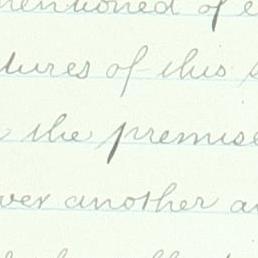 mentioned of
tures of this
the premise
ver another a